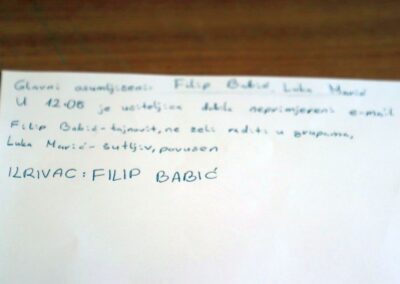 Glavni osumljiceni: Filip Babić, Luka Marić
U 12:06 je uciteljica dobila neprimjereni e-mail
Filip Babić - tajnovit, ne zeli raditi u grupama,
Luka Marić - sutljiv, povucen
IZRIVAC: FILIP BABIĆ